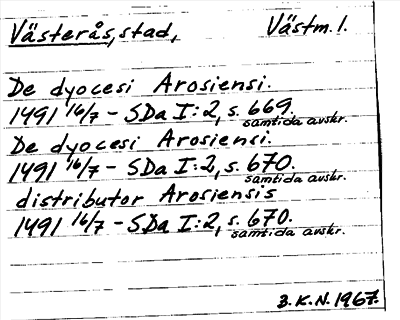 Västerås, stad, Västm. l.
De dyocesi Arosiensi.
1491 16/7 - SDa I:2, s. 669.
samtida avskr.
De dyocesi Arosiensi.
1491 16/7 - SDa I:2, s. 670.
samtida avskr.
distributor Arosiensis
1491 16/7 - SDa I:2, s. 670.
samtida avskr.
B.K.N. 1967.